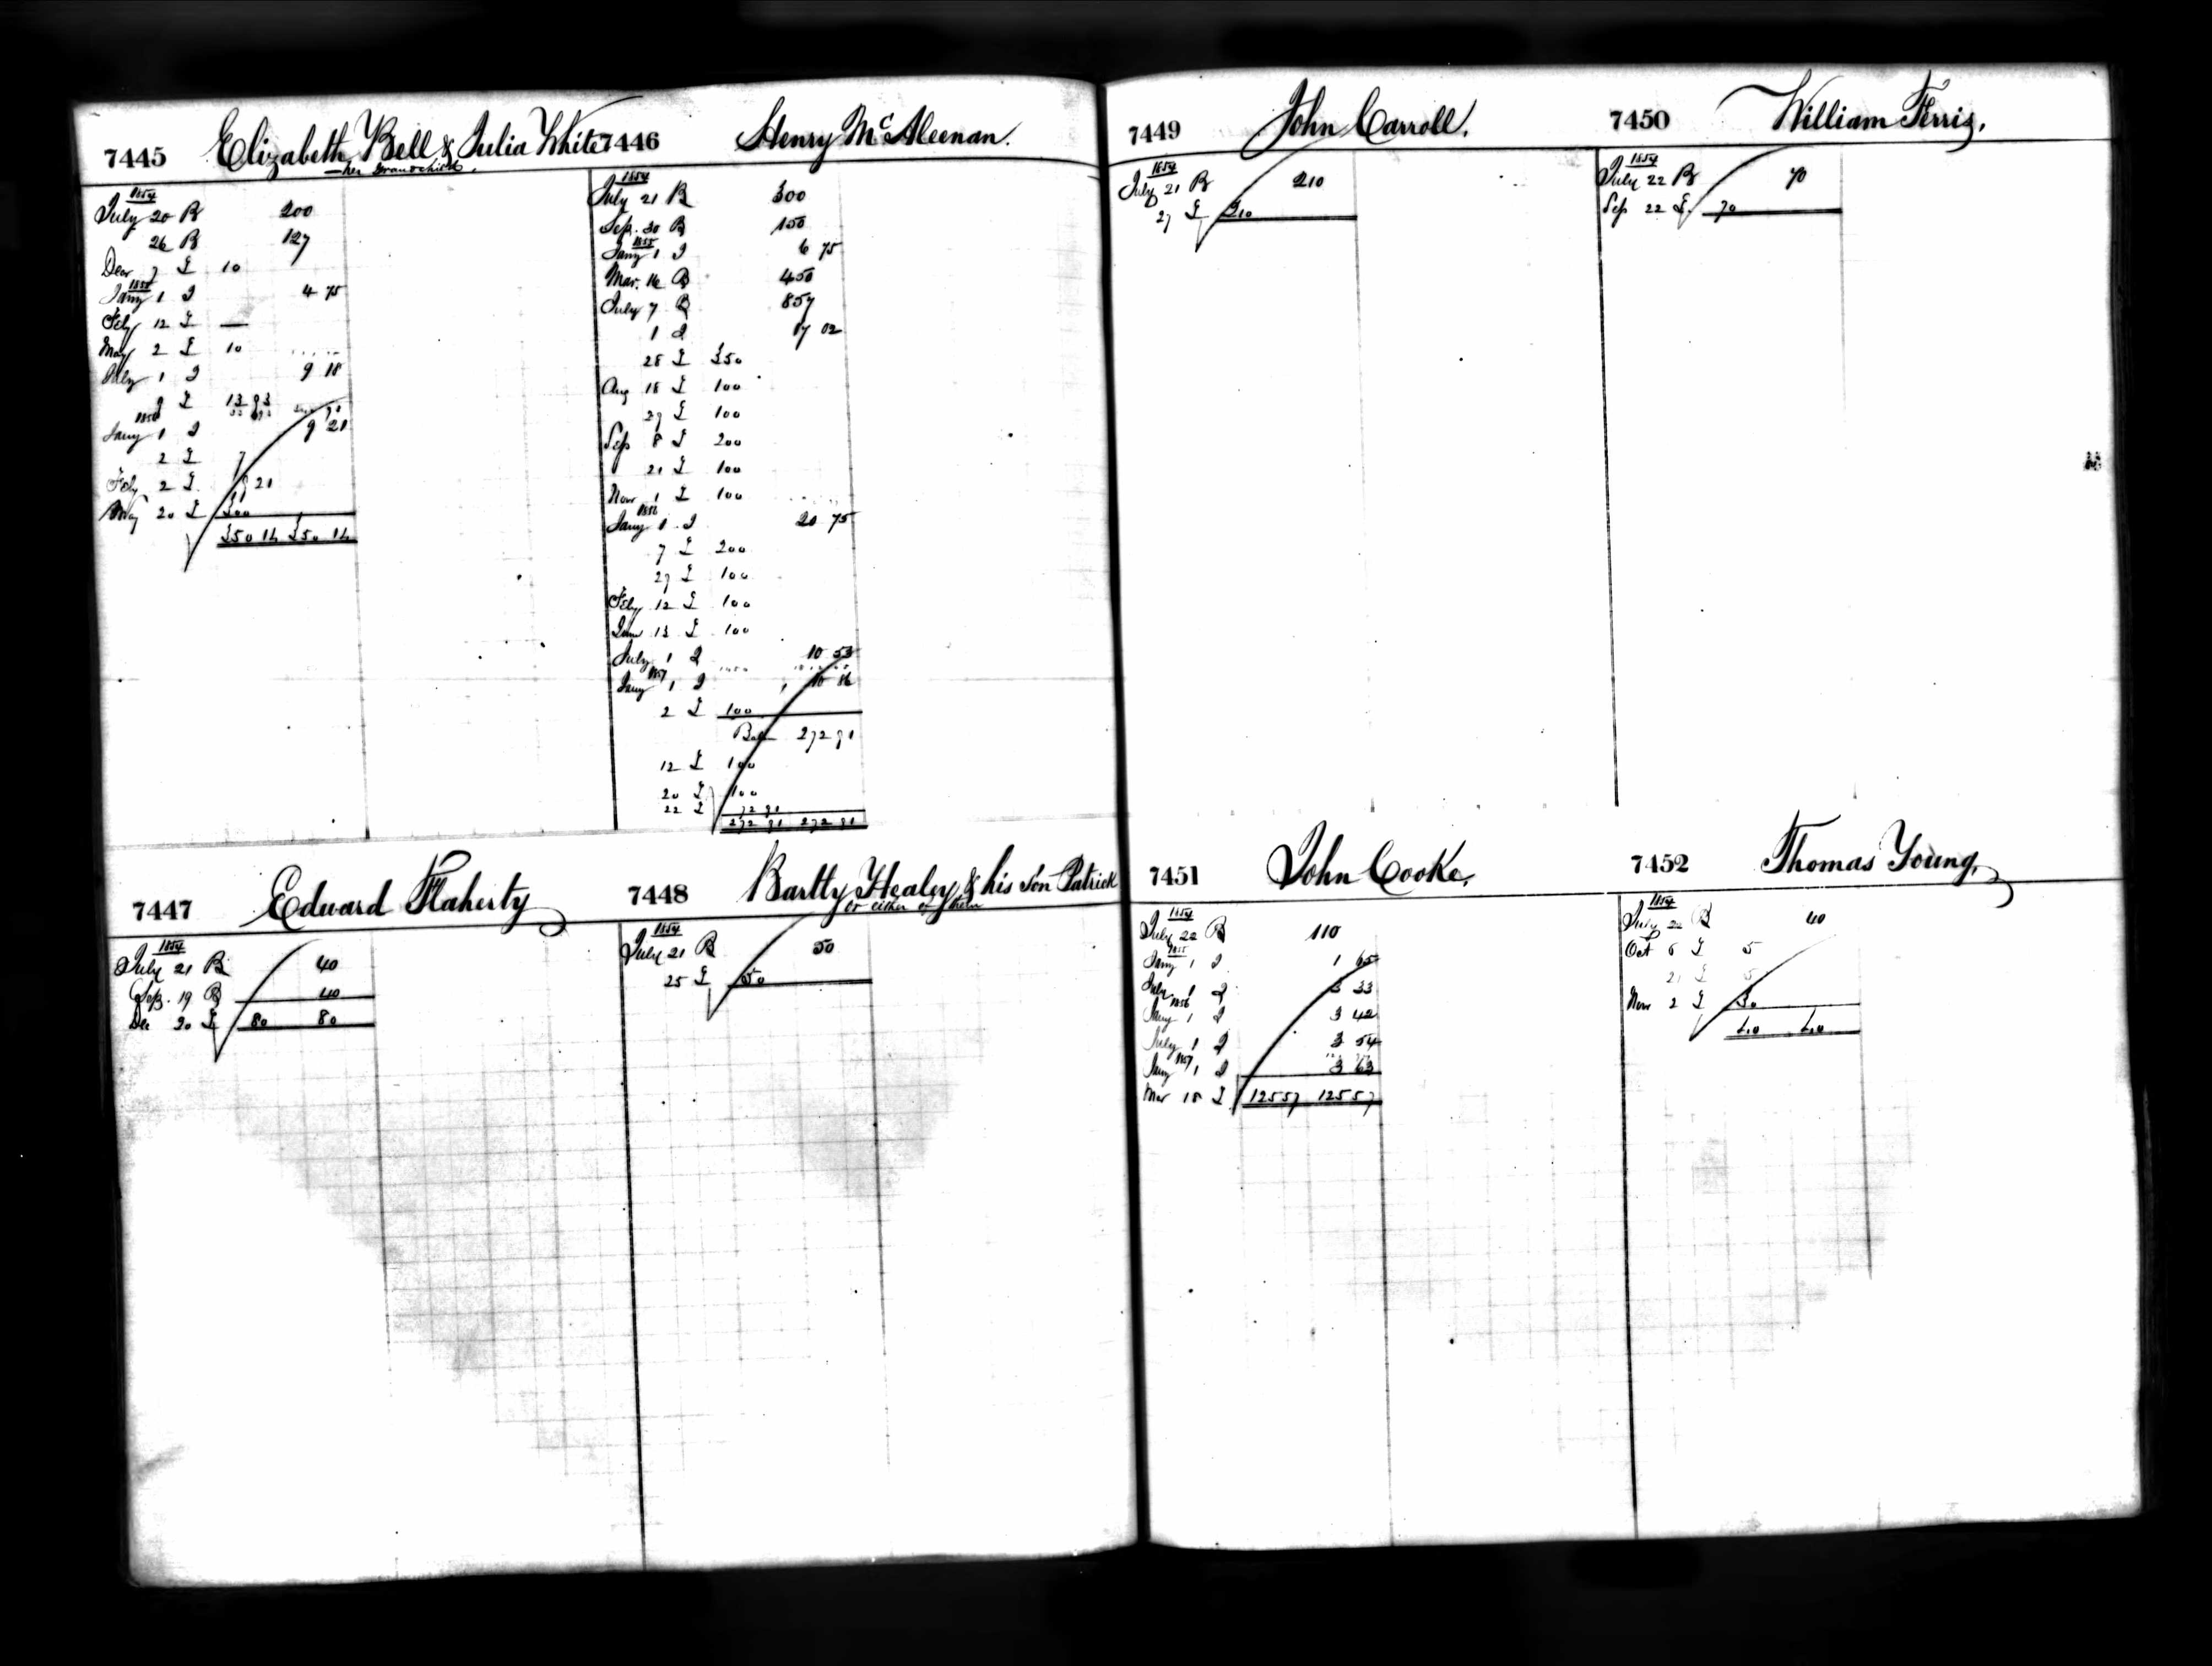 7445 Elizabeth Bell & Julia White
her Grandchild.
1854
July 20 B 200
26 B 127
Decr 7 £ 10
1855
Jany 1 I 4 75
Feby 12 £ —
May 2 £ 10
July 1 I 9 18
9 £ 13 93
1856
Jany 1 I 9 21
2 £ 7
Feby 2 £ 9 21
May 20 £ 300
350 14 350 14
7446 Henry McAleenan.
1854
July 21 B 300
Sep. 30 B 150
1855
Jany 1 I 6 75
Mar. 16 B 450
July 7 B 857
1 I 17 02
28 £ 350
Aug 18 £ 100
27 £ 100
Sep 8 £ 200
21 £ 100
Novr 1 £ 100
1856
Jany 1 I 20 75
7 £ 200
27 £ 100
Feby 12 £ 100
June 13 £ 100
July 1 I 10 53
1857
Jany 1 I 10 86
2 £ 100
Bal 272 91
12 £ 100
20 £ 100
22 £ 72 91
272 91 272 91
7447 Edward Flaherty
1854
July 21 B 40
Sep. 19 B 40
Dec 20 £ 80 80
7448 Bartty Healey & his son Patrick
or either of them
1854
July 21 B 50
25 £ 50
7449 John Carroll.
1854
July 21 B 210
27 £ 210
7450 William Ferris,
1854
July 22 B 70
Sep 22 £ 70
7451 John Cooke,
1854
July 22 B 110
1855
Jany 1 I 1 65
July 1 I 3 33
1856
Jany 1 I 3 42
July 1 I 3 54
1857
Jany 1 I 3 63
Mar 18 £ 125 57 125 57
7452 Thomas Young,
1854
July 22 B 40
Oct 6 £ 5
21 £ 5
Novr 2 £ 30
40 40